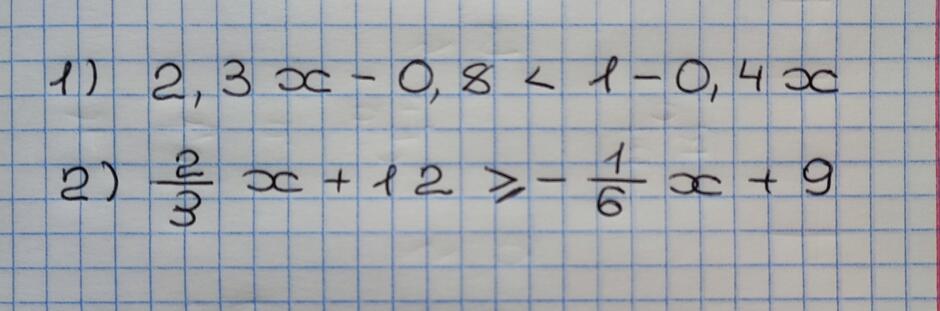 1) 2,3x - 0,8 < 1 - 0,4x
2) 2/3 x + 12 ⩾ - 1/6 x + 9